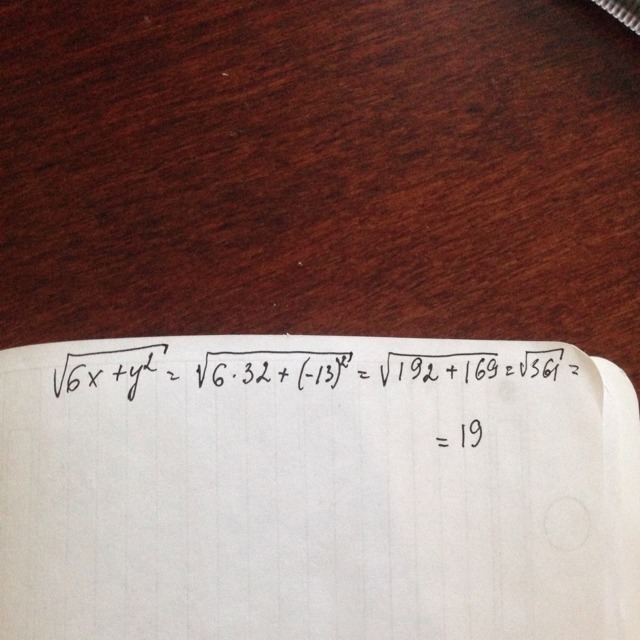 √(6x + y²) = √(6·32 + (-13)²) = √(192 + 169) = √361 =
= 19